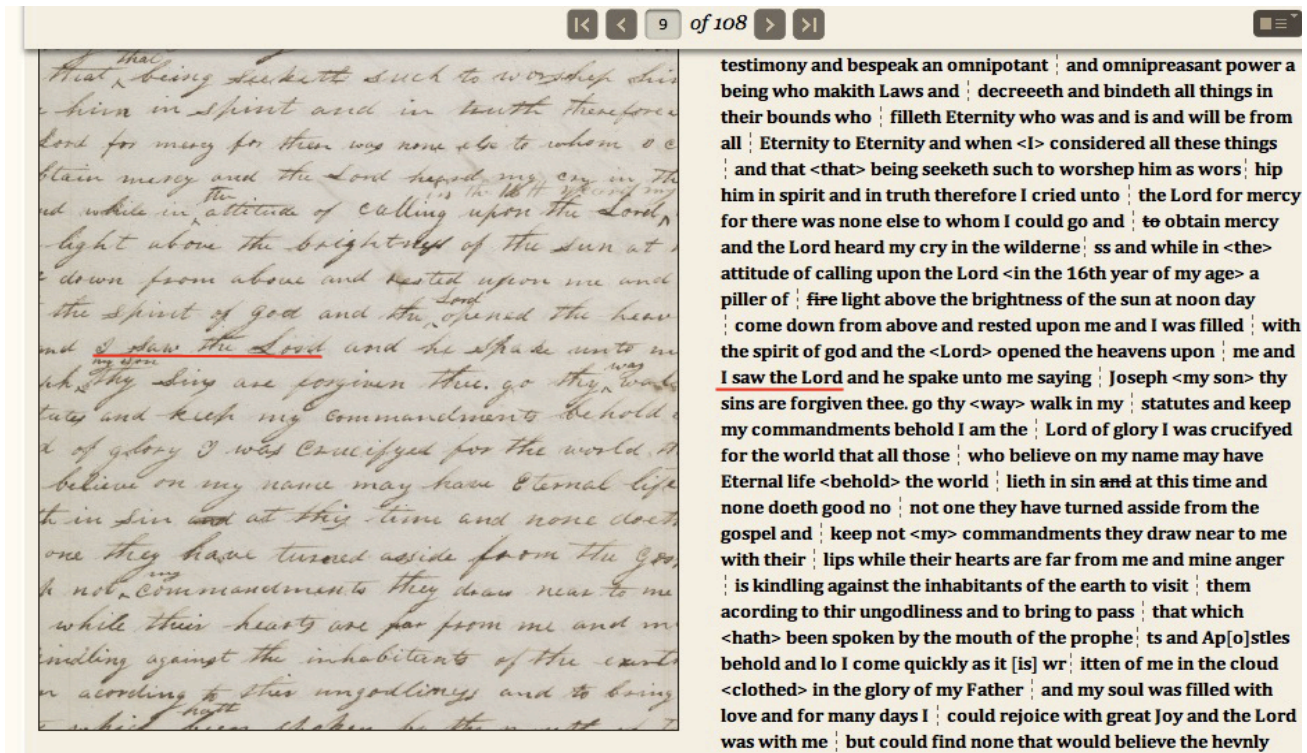 9 of 108
that
that being seeketh such to worshep him
him in spirit and in truth therefore
Lord for mercy for there was none else to whom I c
btain mercy and the Lord heard my cry in th
the in the 16th year of my
nd while in attitude of calling upon the Lord
light above the brightness of the sun at
down from above and rested upon me and
Lord
the spirit of god and the opened the heav
nd I saw the Lord and he spake unto m
my son was
ph thy sins are forgiven thee. go thy walk
tutes and keep my commandments behold
d of glory I was crucifyed for the world
believe on my name may have Eternal life
th in sin and at this time and none doeth
one they have turned asside from the Gos
my
p not commandments they draw near to me
while their hearts are far from me and m
indling against the inhabitants of the earth
acording to thir ungodliness and to bring
hath
which been spoken by the mouth of
testimony and bespeak an omnipotant ¦ and omnipreasant power a
being who makith Laws and ¦ decreeeth and bindeth all things in
their bounds who ¦ filleth Eternity who was and is and will be from
all ¦ Eternity to Eternity and when <I> considered all these things
¦ and that <that> being seeketh such to worshep him as wors¦ hip
him in spirit and in truth therefore I cried unto ¦ the Lord for mercy
for there was none else to whom I could go and ¦ to obtain mercy
and the Lord heard my cry in the wilderne¦ ss and while in <the>
attitude of calling upon the Lord <in the 16th year of my age> a
piller of ¦ fire light above the brightness of the sun at noon day
¦ come down from above and rested upon me and I was filled ¦ with
the spirit of god and the <Lord> opened the heavens upon ¦ me and
I saw the Lord and he spake unto me saying ¦ Joseph <my son> thy
sins are forgiven thee. go thy <way> walk in my ¦ statutes and keep
my commandments behold I am the ¦ Lord of glory I was crucifyed
for the world that all those ¦ who believe on my name may have
Eternal life <behold> the world ¦ lieth in sin and at this time and
none doeth good no ¦ not one they have turned asside from the
gospel and ¦ keep not <my> commandments they draw near to me
with their ¦ lips while their hearts are far from me and mine anger
¦ is kindling against the inhabitants of the earth to visit ¦ them
acording to thir ungodliness and to bring to pass ¦ that which
<hath> been spoken by the mouth of the prophe¦ ts and Ap[o]stles
behold and lo I come quickly as it [is] wr¦ itten of me in the cloud
<clothed> in the glory of my Father ¦ and my soul was filled with
love and for many days I ¦ could rejoice with great Joy and the Lord
was with me ¦ but could find none that would believe the hevnly